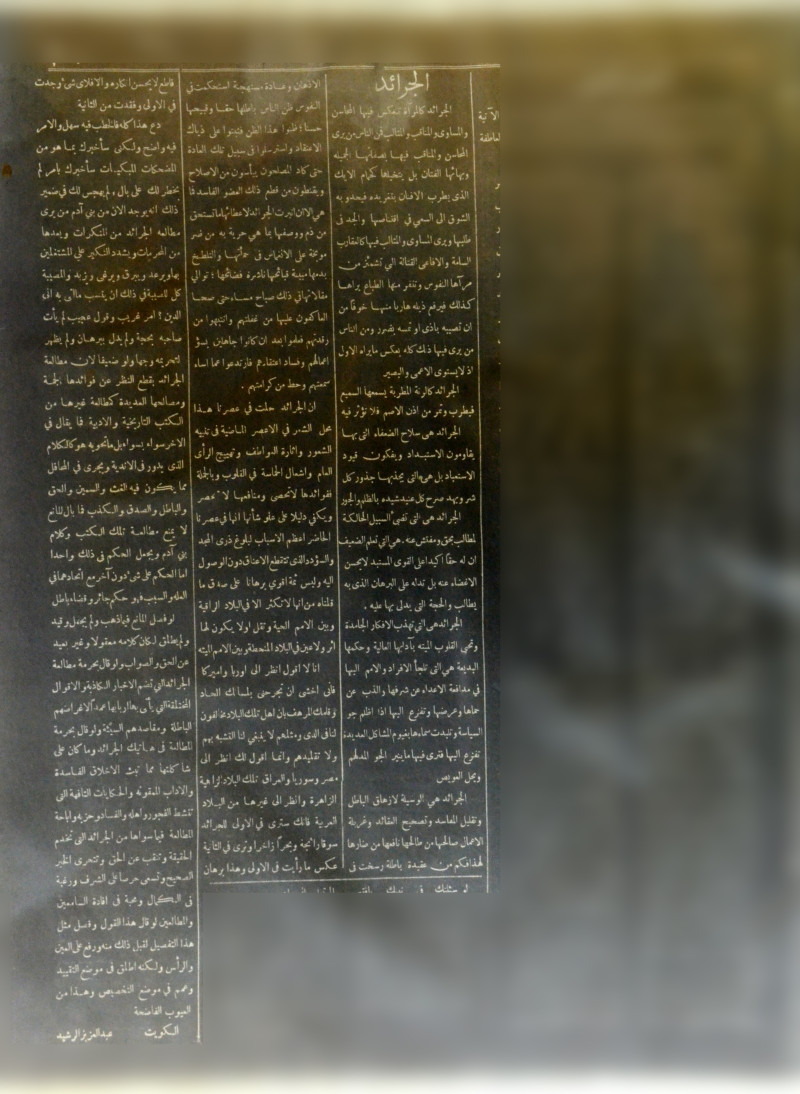 الجرائد
الجرائد كالمرآة تنعكس فيها المحاسن
والمساوى والمناقب والمثالب فمن الناس من يرى
المحاسن والمناقب فيها
وبهائها الفتان بل يتخيلها كحمام الايك
الذى يطرب الافنان بتغريده فيحدو به
الشوق الى السعي في اقتناصها والجد في
طلبها ويرى المساوى والمثالب فيها كالعقارب
السامة والافاعى القتالة التي تشمئز من
مرآها النفوس وتنفر منها الطباع يراها
كذلك فيرفع ذيله هاربا منها خوفا من
ان تصيبه باذى او تمسه بضرر ومن الناس
من يرى فيها ذلك كله بعكس مايراه الاول
اذ لا يستوى الاعمى والبصير
الجرائد كالرنة المطربة يسمعها السميع
فيطرب وتمر من اذن الاصم فلا تؤثر فيه
الجرائد هى سلاح الضعفاء التى بها
يقاومون الاستبداد ويفكون قيود
الاستعباد بل هى التى يجذبها جذور كل
شر ويهد صرح كل عنيد شيده بالظلم والجور
الجرائد هى التى تضىء السبيل الحالكة
لمطالب بحق ومفتش عنه هى التى تعلم الضعيف
ان له حقا اكيدا على القوى المستبد لا يحسن
الاغضاء عنه بل تدله على البرهان الذى به
يطالب والحجة التى يدلى بها عليه .
الجرائد هى التى تهذب الافكار الجامدة
وتحي القلوب الميتة بآدابها العالية وحكمها
البديعة هي التى تلجأ الافراد والامم اليها
في مدافعة الاعداء عن شرفها والذب عن
حماها وعرضها وتفزع اليها اذا اظلم جو
السياسة وتلبدت سماءها بغيوم المشاكل العديدة
تفزع اليها فترى فيها ماينير الجو المدلهم
ويحل العويص
الجرائد هي الوسيلة لازهاق الباطل
وتقليل المفاسد وتصحيح العقائد وغربلة
الاعمال صالحها من طالحها نافعها من ضارها
لهذا فكم من عقيدة باطلة رسخت فى
الاذهان وعادة مستهجنة استحكمت فى
النفوس ظن الناس باطلها حقا وقبيحها
حسنا فظلوا هذا الظن فتبنوا على ذياك
الاعتقاد واسترسلوا فى سبيل تلك العادة
حتى كاد المصلحون ييأسون من الاصلاح
ويقنطون من قطع ذلك العضو الفاسد فما
هي الا ان انبرت الجرائد لاعطائها ما تستحق
من ذم ووصفها بما هي حرية به من ضر
موبخة على الانغماس فى حمأتها والتلطخ
بدمها مبينة قبائحها ناشرة فضائحها ؛ توالي
مقالاتها فى ذلك صباح مساء حتى صحا
العاكفون عليها من غفلتهم وانتبهوا من
رقدتهم فعلموا بعد ان كانوا جاهلين بسوء
اعمالهم وفساد اعتقادهم فارتدعوا عما اساء
سمعتهم وحط من كرامتهم .
ان الجرائد حلت في عصرنا هذا
محل الشعر فى الاعصر الماضية فى تنبيه
الشعور واثارة العواطف وتهييج الرأى
العام واشعال الحماسة فى القلوب وبالجملة
ففوائدها لا تحصى ومنافعها لا تحصر
ويكفي دليلا على علو شأنها انها فى عصرنا
الحاضر اعظم الاسباب لبلوغ ذرى المجد
والسؤدد الذى تتقطع الاعناق دون الوصول
اليه وليس ثمة اقوي برهانا على صدق ما
قلناه من انها لا تكثر الا في البلاد الراقية
وبين الامم الحية وتقل اولا يكون لها
اثر ولا عين فى البلاد المنحطة وبين الامم الميتة
انا لا اقول انظر الى اوربا واميركا
فانى اخشى ان تجرحنى بلسانك الحاد
وقلمك المرهف بان اهل تلك البلاد مخالفون
لنا فى الدى ومثلهم لا ينبغي لنا التشبه بهم
ولا تقليدهم وانما اقول لك انظر الى
مصر وسوريا والعراق تلك البلاد الزاهية
الزاهرة وانظر الى غيرها من البلاد
العربية فانك سترى في الاولى للجرائد
سوقا رائجة وبحرا زاخرا وترى في الثانية
عكس ما رأيت فى الاولى وهذا برهان
قاطع لا يحسن انكاره والا فلأى شىء وجدت
في الاولى وفقدت من الثانية
دع هذا كله فالخطب فيه سهل والامر
فيه واضح ولكنى سأخبرك بما هو من
المضحكات المبكيات سأخبرك بامر لم
يخطر لك على بال ولم يهجس لك في ضمير
ذلك انه يوجد الان من بني آدم من يرى
مطالعة الجرائد من المنكرات ويعدها
من المحرمات ويشدد النكير على المشتغلين
بها ويرعد ويبرق ويرغى ويزبد والمصيبة
كل المصيبة في ذلك ان ينسب ما أتى به الى
الدين ؟ امر غريب وقول عجيب لم يأت
صاحبه بحجة ولم يدل ببرهان ولم يظهر
لتحريمه وجها ولو ضعيفا لان مطالعة
الجرائد بقطع النظر عن فوائدها الجمة
ومصالحها العديدة كمطالعة غيرها من
الكتب التاريخية والادبية فما يقال في
الاخر سواء بسواء بل ما تحويه هو كالكلام
الذى يدور فى الاندية ويجرى في المحافل
مما يكون فيه الغث والسمين والحق
والباطل والصدق والكذب فما بال المانع
لا يمنع مطالعة تلك الكتب وكلام
بني آدم ويجعل الحكم فى ذلك واحدا
اما الحكم على شىء دون آخر مع اتحادهما فى
العلة والسبب فهو حكم جائر وقضاء باطل
لو فصل المانع فيما ذهب ولم يجمل وقيد
ولم يطلق لكان كلامه معقولا وغير بعيد
عن الحق والصواب ولو قال بحرمة مطالعة
الجرائد التي تضم الاخبار الكاذبة والاقوال
المختلقة التي يأتى بها اربابها لاغراضهم
الباطلة ومقاصدهم السيئة ولو قال بحرمة
المطالعة فى هاتيك الجرائد وما كان على
شاكلتها مما تبث الاخلاق الفاسدة
والاداب الممقوته والحكايات التافهة التى
تنشط الفجور واهله والفساد وحزبه واباحة
المطالعة فيما سواها من الجرائد التى تخدم
الحقيقة وتنقب عن الحق وتتحرى الخبر
الصحيح وتسعى حرصا على الشرف ورغبة
فى الكمال ومحبة فى افادة السامعين
والمطالعين لو قال هذا القول وفصل مثل
هذا التفصيل لقبل ذلك منه ورفع على العين
والرأس ولكنه اطلق فى موضع التقييد
وعمم في موضع التخصيص وهذا من
العيوب الفاضحة
الكويت عبد العزيز الرشيد